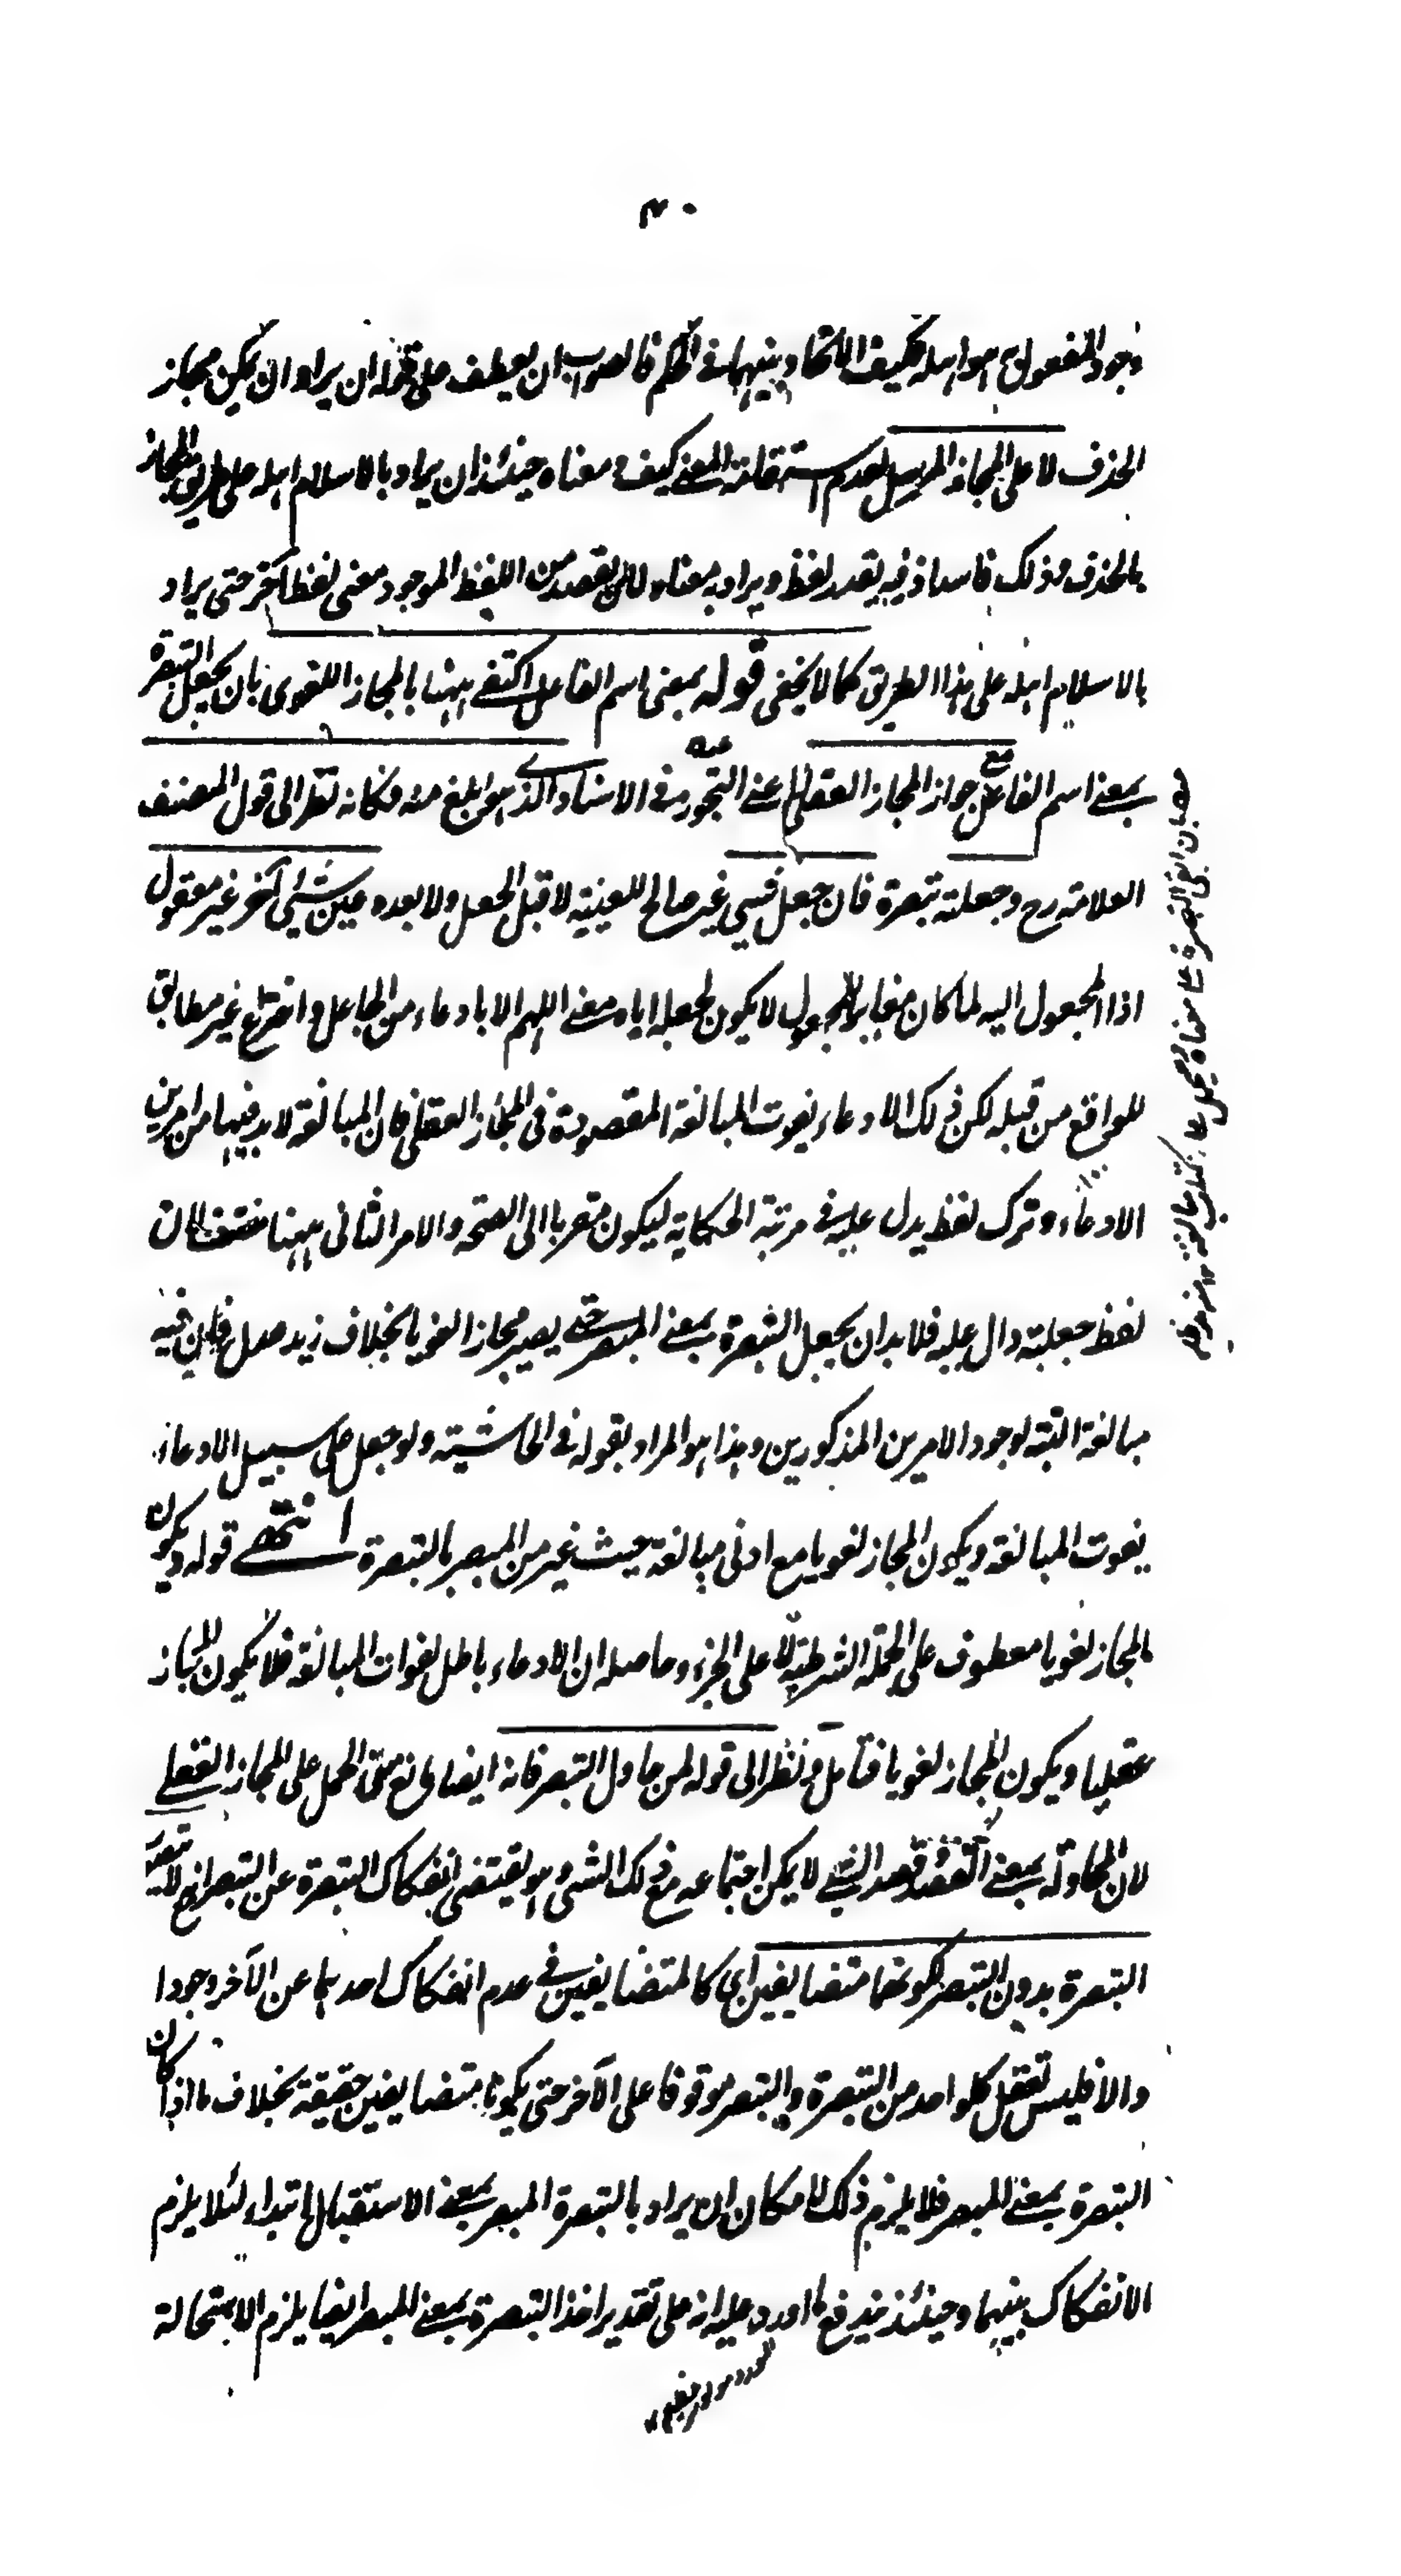 ٤٠
وجود المفعول اى هو اهله فكيف الاتحاد بينهما فى الحكم فالصواب ان يعطف على قوله ان يراد ان يكون مجاز
الحذف لا على المجاز المرسل لعدم استقامة المعنى كيف ومعناه حينئذ ان يراد بالاسلام اهله على طريق المجاز
بالحذف وذلك فاسد اذ فيه يقدر لفظ ويراد به معناه لا ان يقصد من اللفظ الموجود معنى لفظ آخر حتى يراد
بالاسلام اهله على هذا الطريق كما لا يخفى قوله بمعنى اسم الفاعل اكتفى ههنا بالمجاز اللغوى بان يجعل التبصرة
بمعنى اسم الفاعل مع جواز المجاز العقلى اعنى التجوز فى الاسناد الذى هو ابلغ منه فكانه نظر الى قول المصنف
العلامة رح وجعلته تبصرة فان جعل شىء غير صالح للعينية لا قبل الجعل ولا بعده عين شىء آخر غير معقول
اذ المجعول اليه لما كان مغايرا للمجعول لا يكون لجعله اياه معنى اللهم الا بادعاء من الجاعل واختراع غير مطابق
للواقع من قبله لكن ذلك الادعاء يفوت المبالغة المقصودة فى المجاز العقلى فان المبالغة لا بد فيها من امرين
الادعاء وترك لفظ يدل عليه فى مرتبة الحكاية ليكون مقربا الى الصحة والامر الثانى ههنا منتف لان
لفظ جعلته دال عليه فلا بد ان يجعل التبصرة بمعنى المبصر حتى يصير مجازا لغويا بخلاف زيد عدل فان فيه
مبالغة البتة لوجود الامرين المذكورين وهذا هو المراد بقوله فى الحاشية ولو جعل على سبيل الادعاء
يفوت المبالغة ويكون المجاز لغويا مع ادنى مبالغة حيث غير من المبصر بالتبصرة انتهى قوله ويكون
المجاز لغويا معطوف على الجملة الشرطية لا على الجزاء وحاصله ان الادعاء باطل لفوات المبالغة فلا يكون المجاز
عقليا ويكون المجاز لغويا فتأمل ونظر الى قوله لمن حاول التبصر فانه ايضا مانع من الحمل على المجاز العقلى
لان المحاولة بمعنى القصد وقصد الشىء لا يمكن اجتماعه مع ذلك الشىء وهو يقتضى انفكاك التبصرة عن التبصر مع لا يتصور
التبصرة بدون التبصر لكونهما متضايفين اى كالمتضايفين فى عدم انفكاك احدهما عن الآخر وجودا
والا فليس تعقل كل واحد من التبصرة والتبصر موقوفا على الآخر حتى يكونا متضايفين حقيقة بخلاف ما اذا كان
التبصرة بمعنى المبصر فلا يلزم ذلك لامكان ان يراد بالتبصرة المبصر بمعنى الاستقبال ابتداء لئلا يلزم
الانفكاك بينهما وحينئذ يندفع ما اورد عليه انه على تقدير اخذ التبصرة بمعنى المبصر ايضا يلزم الاستحالة